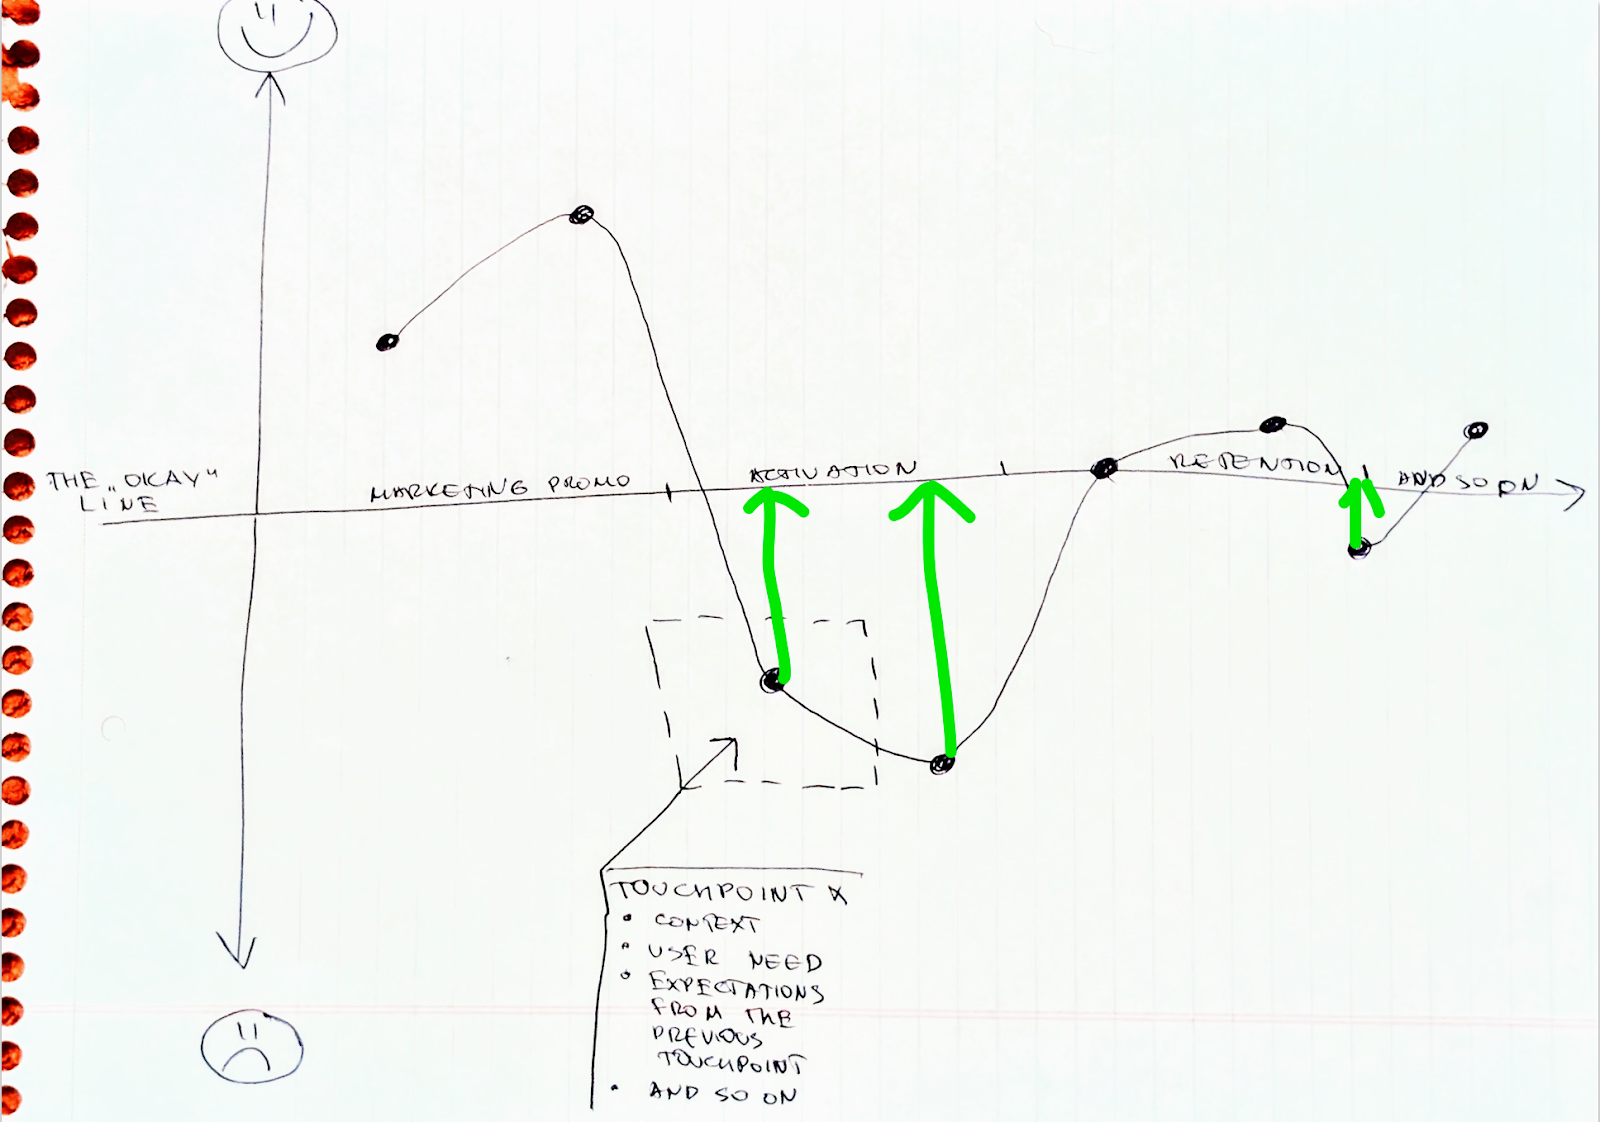 THE „OKAY“
LINE
MARKETING PROMO
ACTIVATION
RETENTION
AND SO ON
TOUCHPOINT X
• CONTEXT
• USER NEED
• EXPECTATIONS
FROM THE
PREVIOUS
TOUCHPOINT
• AND SO ON